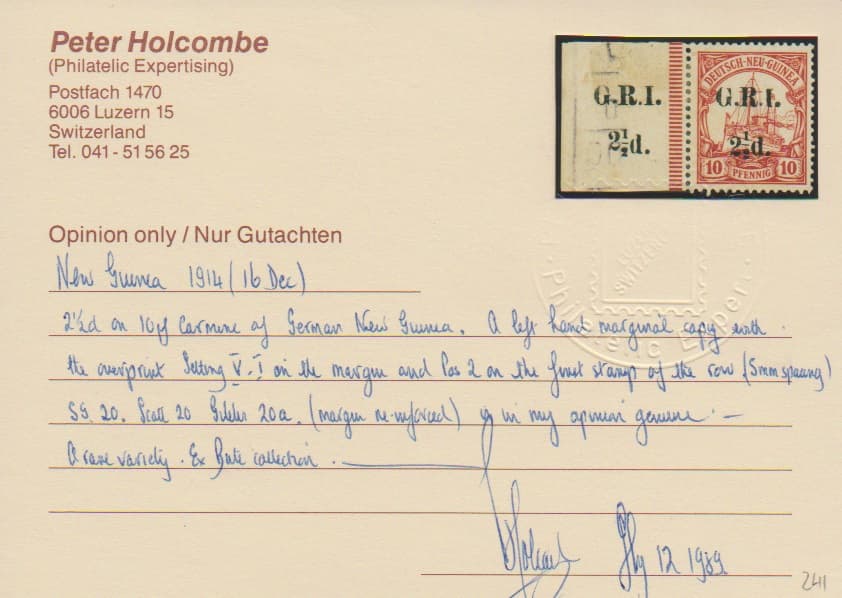 Peter Holcombe
(Philatelic Expertising)
Postfach 1470
6006 Luzern 15
Switzerland
Tel. 041 - 51 56 25
G.R.I.
2½d.
DEUTSCH-NEU-GUINEA
G.R.I.
2½d.
10 PFENNIG 10
Opinion only / Nur Gutachten
New Guinea 1914 (16 Dec)
2½d on 10pf Carmine of German New Guinea. A left hand marginal copy with
the overprint Setting V-I on the margin and Pos 2 on the first stamp of the row (5mm spacing)
SG. 20. Scott 20 Gibbs 20a. (margin re-inforced) is in my opinion genuine. —
A rare variety. Ex Bate collection.
SWITZERL
12 1989
241